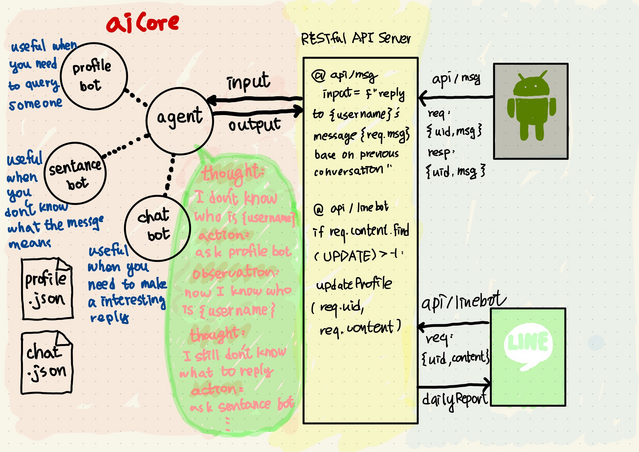 aiCore
useful when
you need
to query
someone
profile
bot
agent
sentance
bot
useful
when
you
don't know
what the messge
means
chat
bot
useful
when you
need to make
a interesting
reply
profile
.json
chat
.json
input
output
thought:
I don't know
who is {username}
action:
ask profile bot
observation:
now I know who
is {username}
thought:
I still don't know
what to reply
action:
ask sentance bot
⋮
RESTful API Server
@ api/msg
input = f"reply
to {username}'s
message {req.msg}
base on previous
conversation"
@ api/linebot
if req.content.find
(UPDATE) > -1:
updateProfile
(req.uid,
req.content)
api/msg
req:
{uid,msg}
resp:
{uid,msg}
api/linebot
req:
{uid,content}
dailyReport
LINE